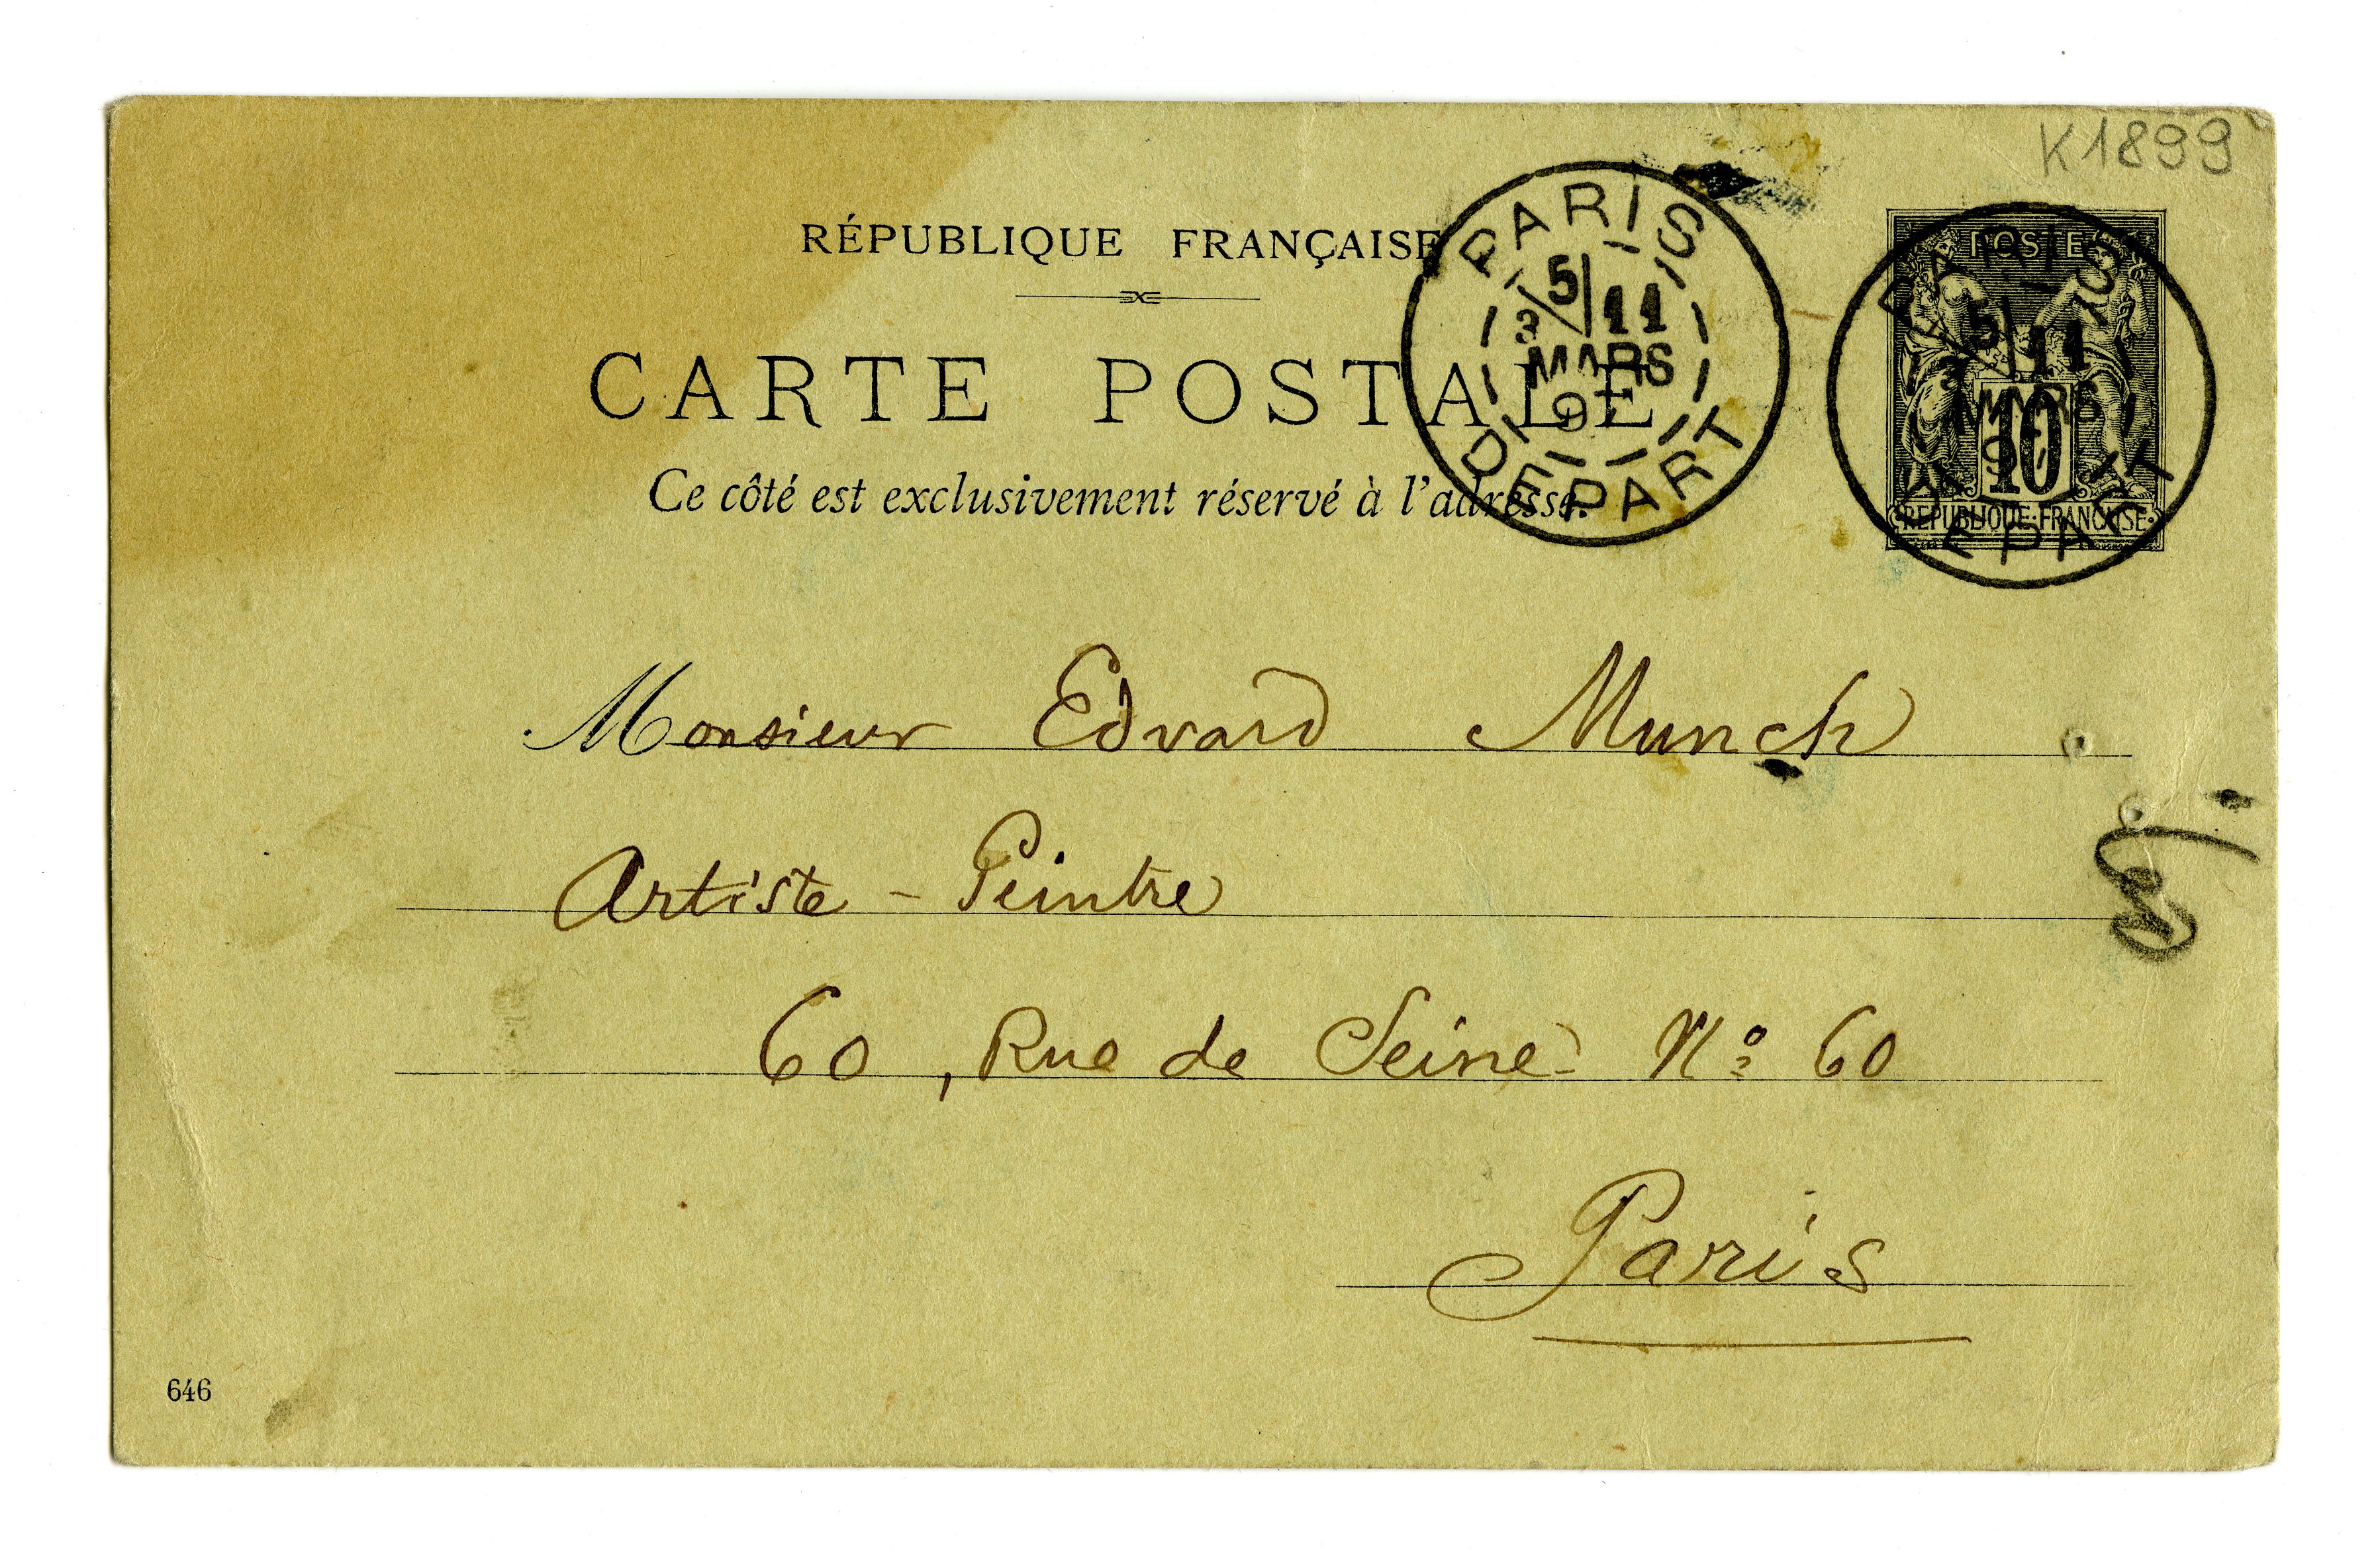 K1899
RÉPUBLIQUE FRANÇAISE
CARTE POSTALE
Ce côté est exclusivement réservé à l'adresse.
PARIS
5 11
3
MARS
DEPART
POSTE
10
REPUBLIQUE FRANCAISE
PARIS
5 11
3
MARS
DEPART
Monsieur Edvard Munch
Artiste - Peintre
60, Rue de Seine - No 60
Paris
646